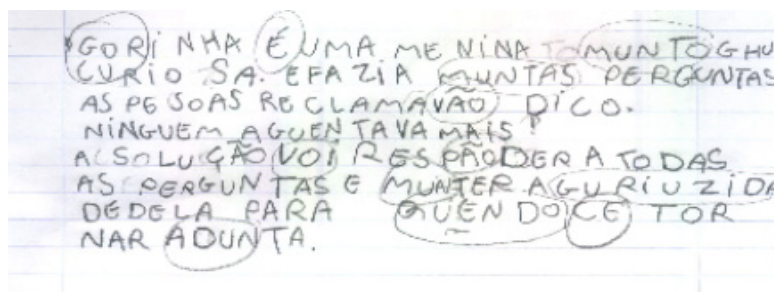 GORINHA É UMA MENINA TOMUNTO GHU
CURIO SA. EFAZIA MUNTAS PERGUNTAS
AS PESOAS RECLAMAVÃO DICO.
NINGUEM AGUENTAVA MAIS!
A SOLUÇÃO VOI RESPÃODER A TODAS
AS PERGUNTAS E MUNTER A GURIUZIDA
DEDELA PARA QUẼNDO CE TOR
NAR ADUNTA.